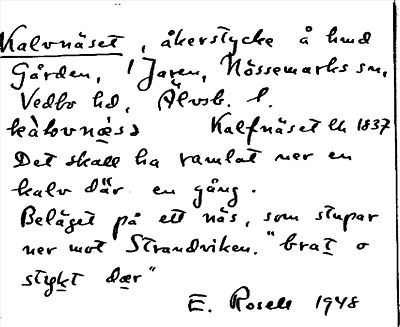 Kalvnäset, åkerstycke å hmd
Gården, 1 Jaren, Nössemarks sn,
Vedbo hd, Älvsb. l.
Kalfnäset lh 1837
Det skall ha ramlat ner en
kalv där en gång.
Beläget på ett näs, som stupar
ner mot Strandviken. "brat o
stykt dær"
E. Rosell 1948